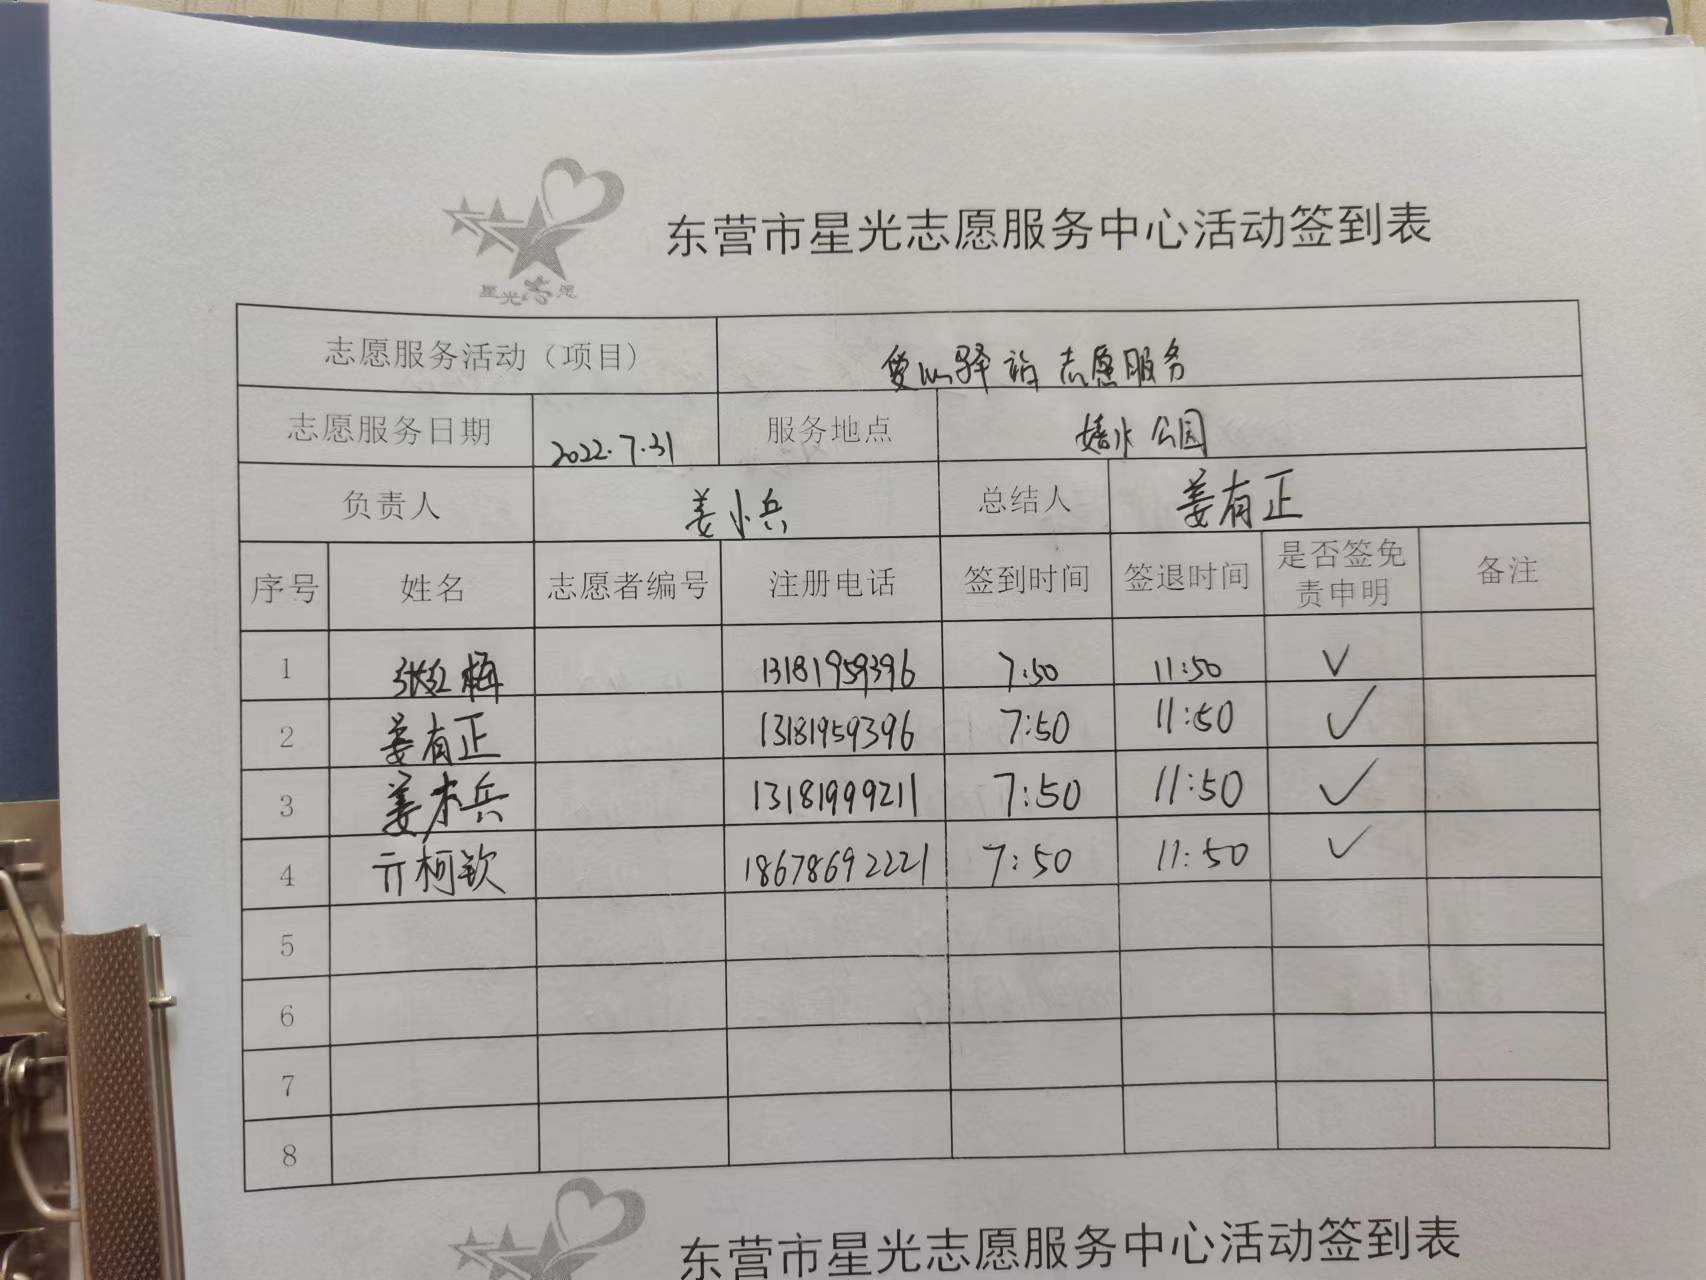 星光志愿
东营市星光志愿服务中心活动签到表
志愿服务活动（项目） 爱心驿站志愿服务
志愿服务日期 2022.7.31 服务地点 嬉水公园
负责人 姜小兵 总结人 姜有正
序号 姓名 志愿者编号 注册电话 签到时间 签退时间 是否签免责申明 备注
1 张红梅 13181959396 7:50 11:50 ✓
2 姜有正 13181959396 7:50 11:50 ✓
3 姜小兵 13181999211 7:50 11:50 ✓
4 亓柯钦 18678692221 7:50 11:50 ✓
5
6
7
8
东营市星光志愿服务中心活动签到表